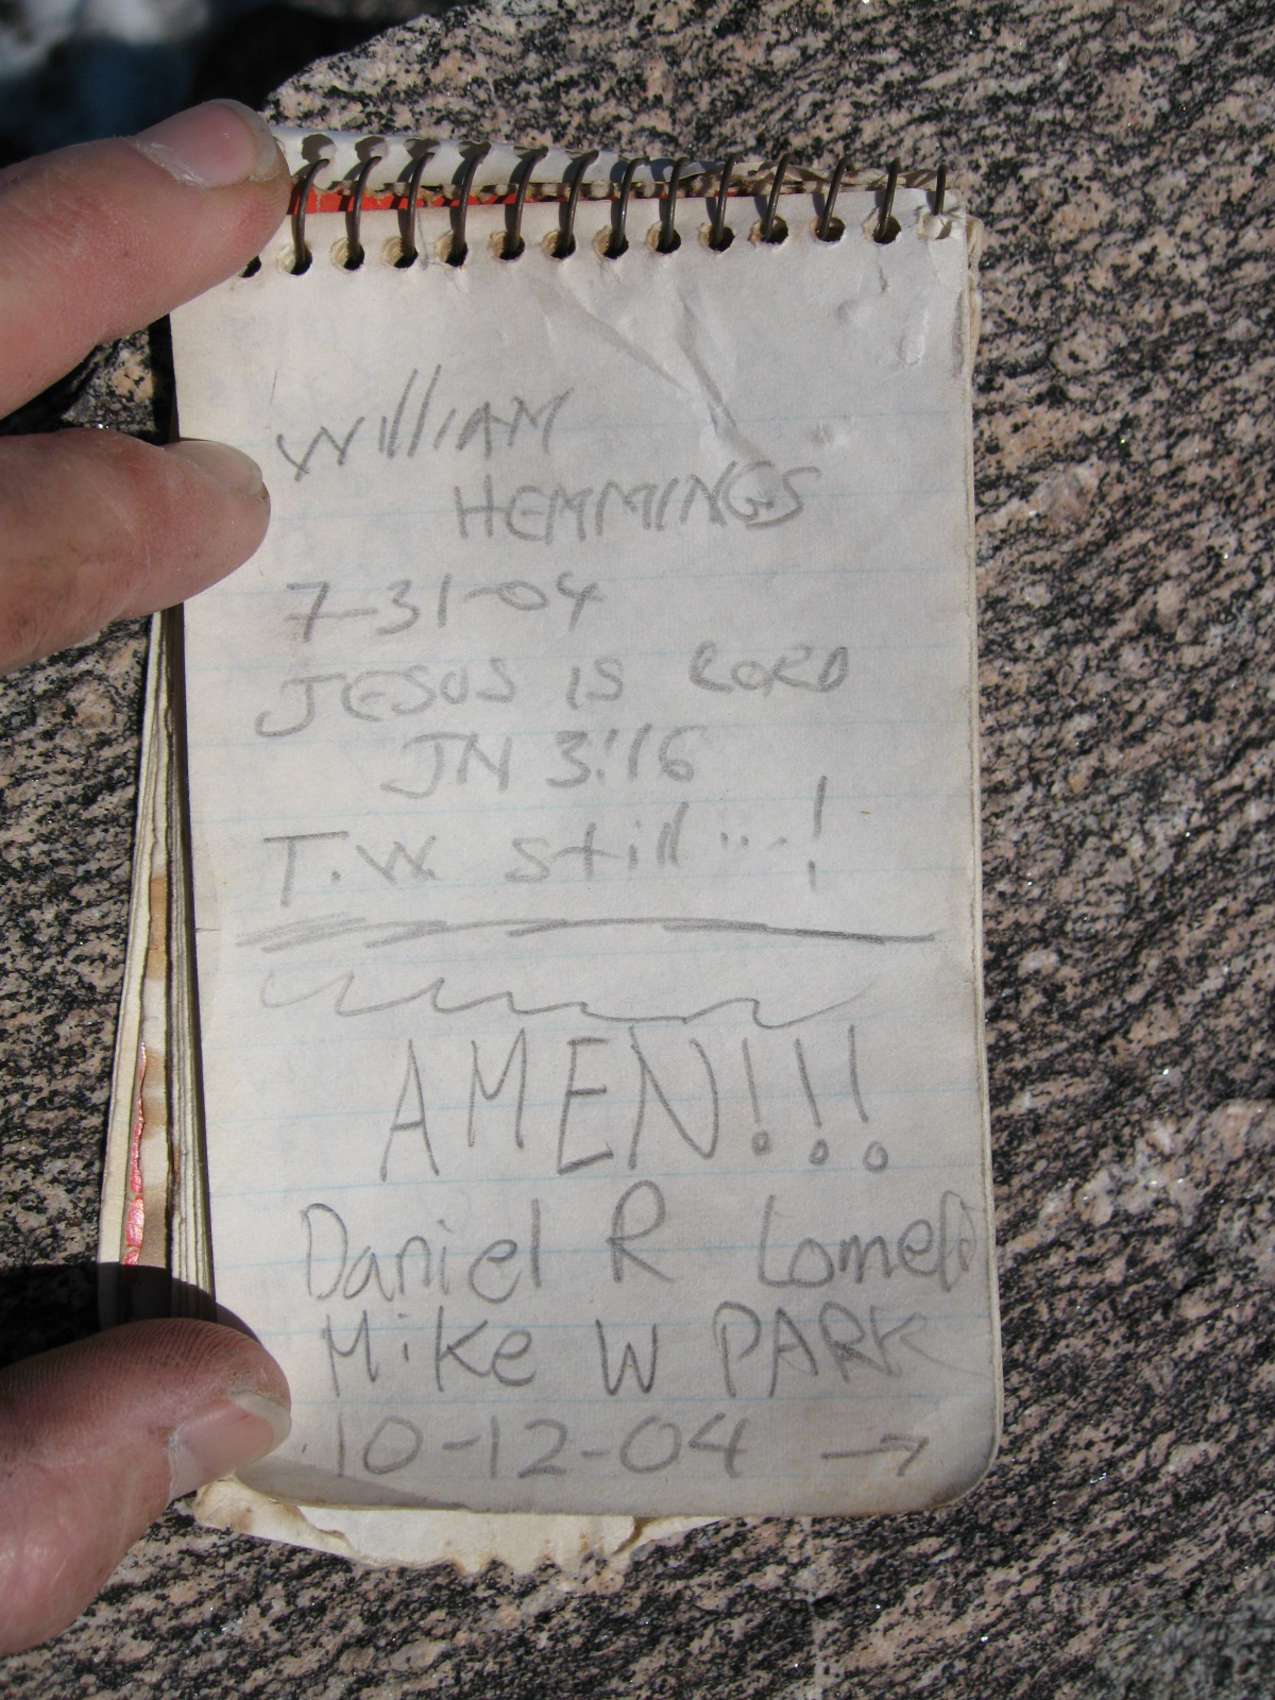 WIllIAM
HEMMINGS
7-31-04
JESUS IS LORD
JN 3:16
T.W. still...!
AMEN!!!
Daniel R Lomeli
Mike W PARK
10-12-04 →